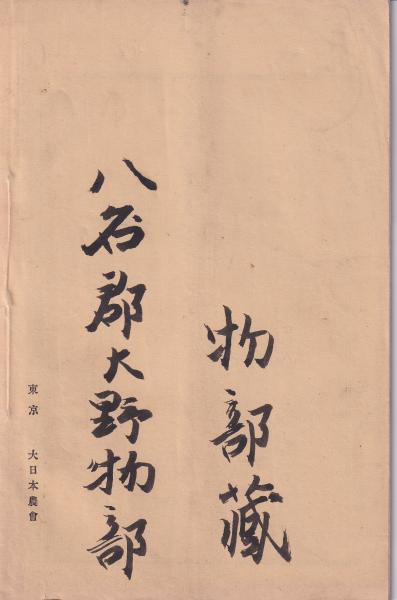 物部蔵
八名郡大野物部
東京 大日本農會